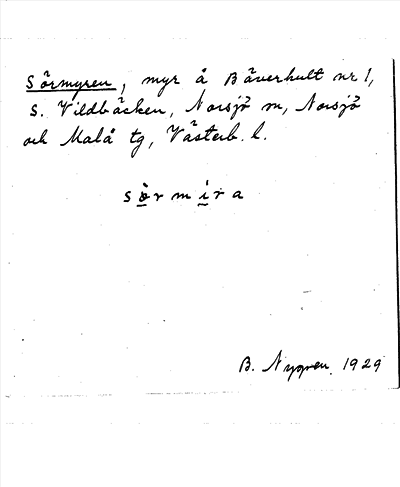 Sörmyren, myr å Bäverhult nr 1,
S. Vildbäcken, Norsjö sn, Norsjö
och Malå tg, Västerb. l.
sörmira
B. Nygren 1929